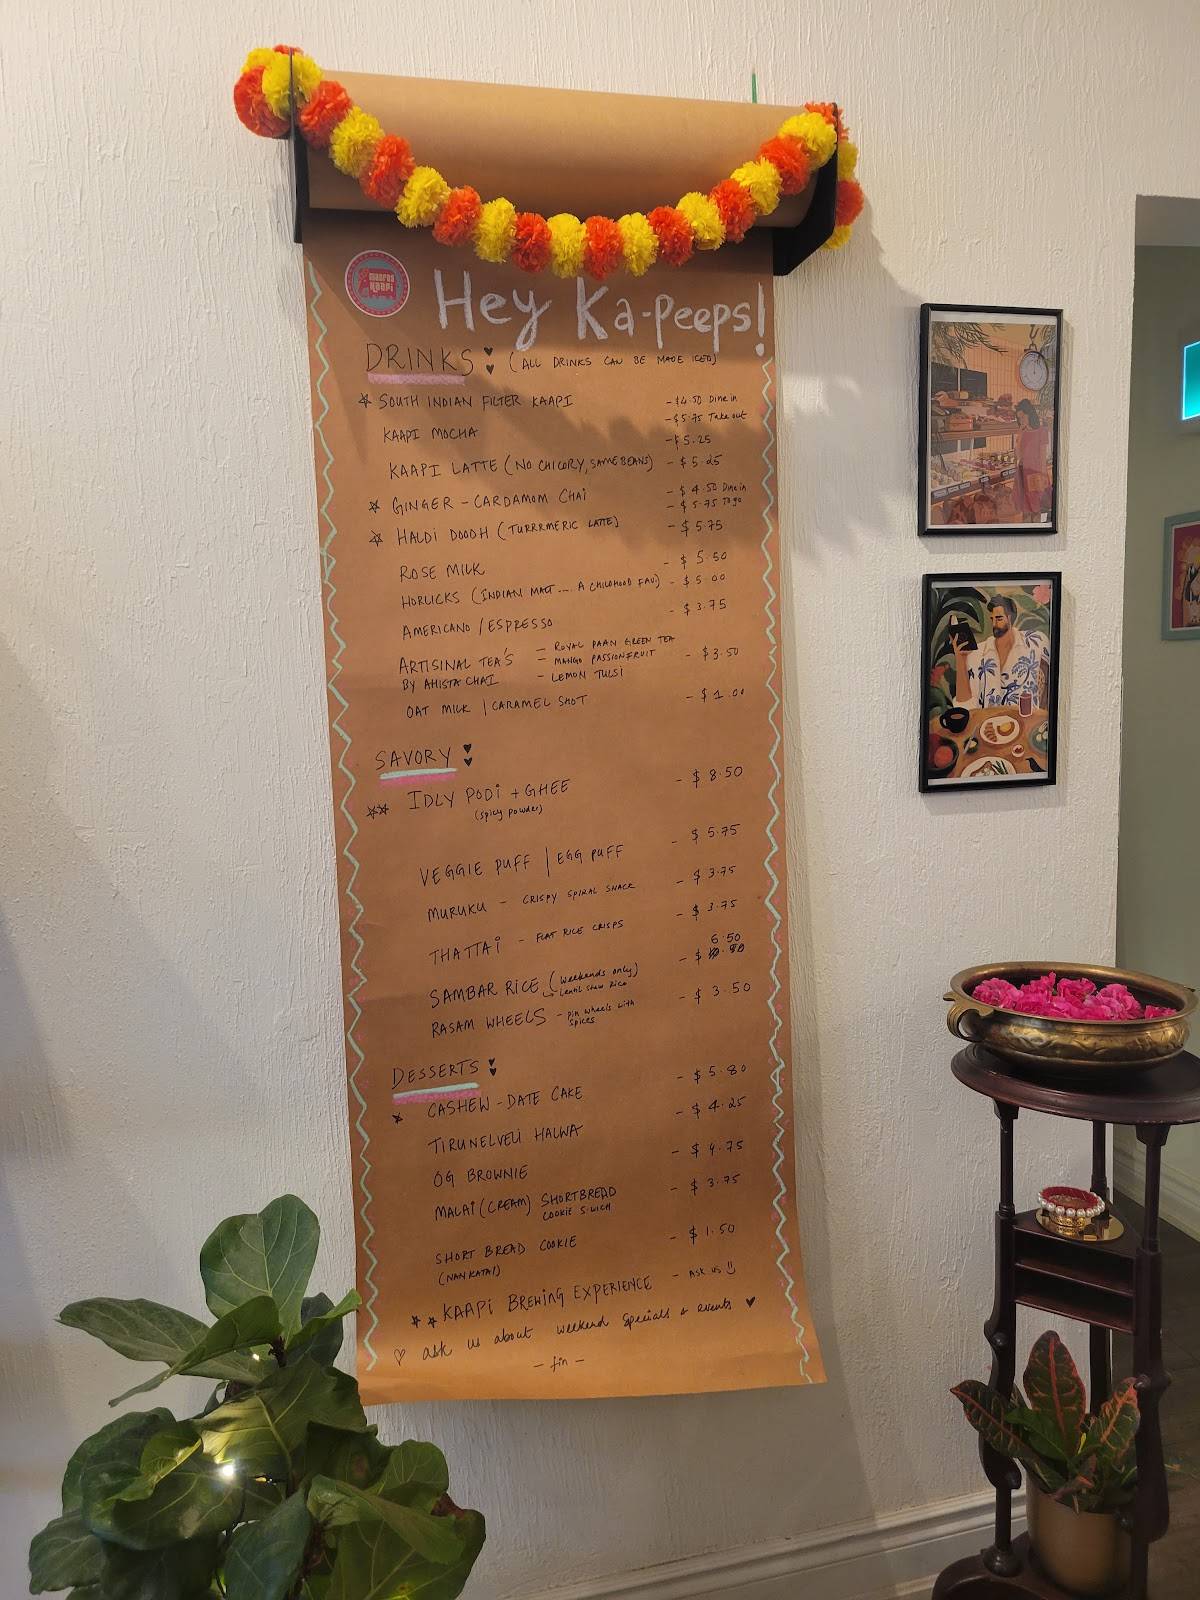 madras
kaapi
Hey Ka-peeps!
DRINKS: (ALL DRINKS CAN BE MADE ICED)
☆ SOUTH INDIAN FILTER KAAPI - $4.50 Dine in
- $5.75 Take out
KAAPI MOCHA - $5.25
KAAPI LATTE (NO CHICORY, SAME BEANS) - $5.25
☆ GINGER - CARDAMOM CHAI - $4.50 Dine in
- $5.75 To go
☆ HALDI DOODH (TURRRMERIC LATTE) - $5.75
ROSE MILK - $5.50
HORLICKS (INDIAN MALT .... A CHILDHOOD FAV) - $5.00
AMERICANO / ESPRESSO - $3.75
ARTISINAL TEA'S - ROYAL PAAN GREEN TEA
BY AHISTA CHAI - MANGO PASSIONFRUIT - $3.50
- LEMON TULSI
OAT MILK | CARAMEL SHOT - $1.00
SAVORY:
☆☆ IDLY PODI + GHEE - $8.50
(spicy powder)
VEGGIE PUFF | EGG PUFF - $5.75
MURUKU - CRISPY SPIRAL SNACK - $3.75
THATTAI - FLAT RICE CRISPS - $3.75
SAMBAR RICE (weekends only) - $ 6.50
Lentil stew Rice
RASAM WHEELS - pin wheels with - $3.50
spices
DESSERTS:
☆ CASHEW - DATE CAKE - $5.80
TIRUNELVELI HALWA - $4.25
OG BROWNIE - $4.75
MALAI (CREAM) SHORTBREAD - $3.75
COOKIE S.WICH
SHORT BREAD COOKIE - $1.50
(NANKATAI)
☆☆ KAAPI BREWING EXPERIENCE - ASK US
♡ ask us about weekend specials & events ♥
- fin -